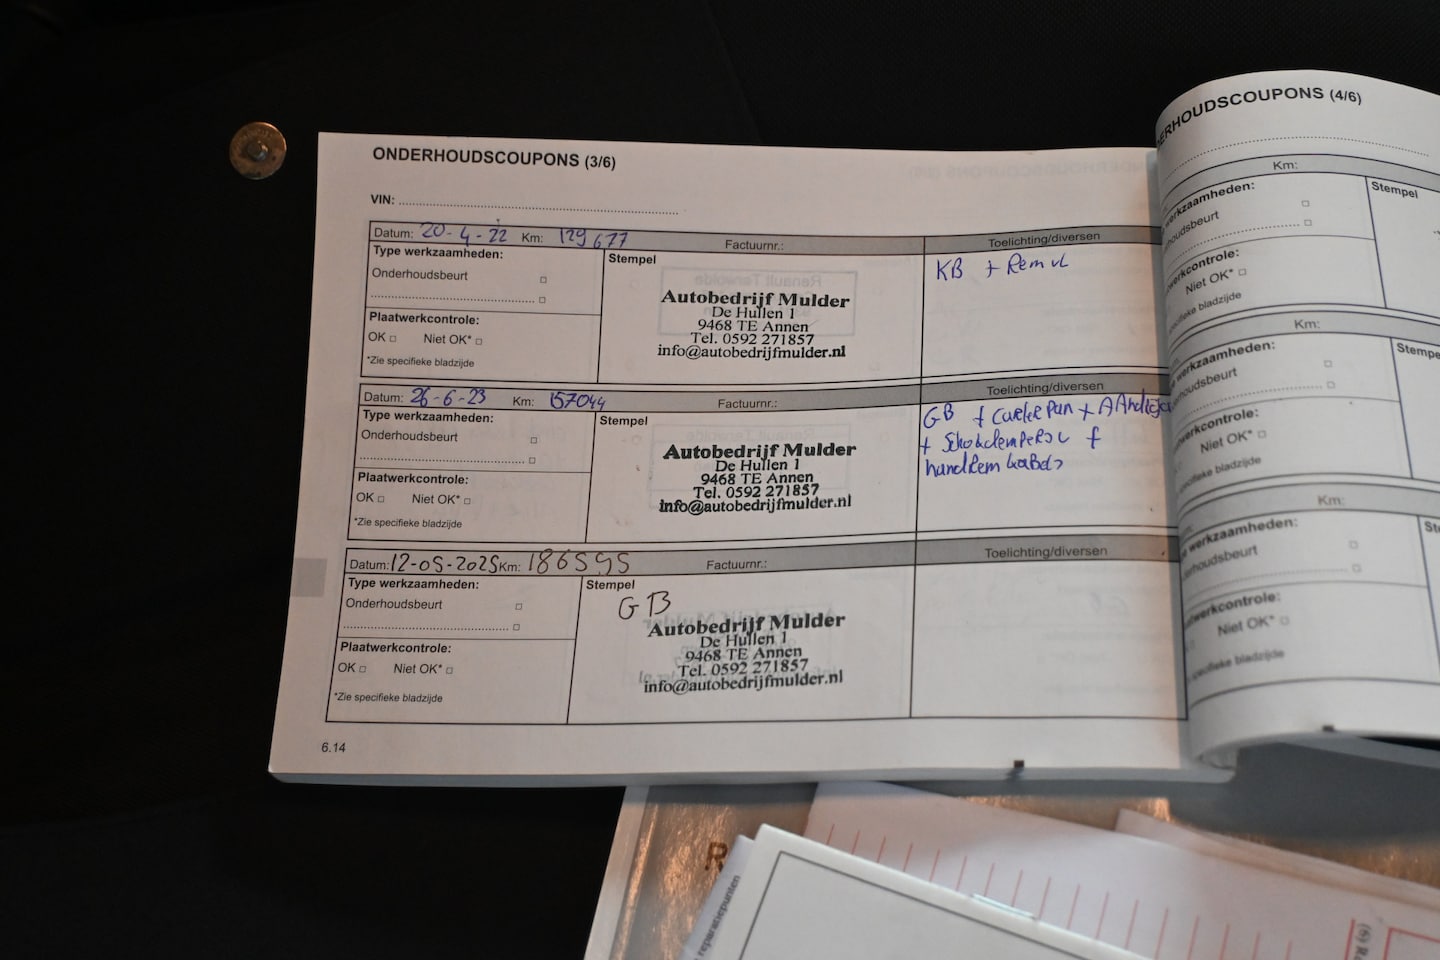 ONDERHOUDSCOUPONS (3/6)
VIN:
Datum: 20-4-22 Km: 129677 Factuurnr.: Toelichting/diversen
Type werkzaamheden:
Onderhoudsbeurt
Plaatwerkcontrole:
OK Niet OK*
*Zie specifieke bladzijde
Stempel
Autobedrijf Mulder
De Hullen 1
9468 TE Annen
Tel. 0592 271857
info@autobedrijfmulder.nl
KB + Rem vl
Datum: 26-6-23 Km: 157044 Factuurnr.: Toelichting/diversen
Type werkzaamheden:
Onderhoudsbeurt
Plaatwerkcontrole:
OK Niet OK*
*Zie specifieke bladzijde
Stempel
Autobedrijf Mulder
De Hullen 1
9468 TE Annen
Tel. 0592 271857
info@autobedrijfmulder.nl
GB + carterpan +
+
handrem kabels
Datum: 12-05-2025 Km: Factuurnr.: Toelichting/diversen
Type werkzaamheden:
Onderhoudsbeurt
Plaatwerkcontrole:
OK Niet OK*
*Zie specifieke bladzijde
Stempel
GB
Autobedrijf Mulder
De Hullen 1
9468 TE Annen
Tel. 0592 271857
info@autobedrijfmulder.nl
6.14
ERHOUDSCOUPONS (4/6)
Km:
erkzaamheden:
houdsbeurt
kcontrole:
Niet OK*
pecifieke bladzijde
Stempel
Km:
e werkzaamheden:
rhoudsbeurt
werkcontrole:
Niet OK*
specifieke bladzijde
Stempe
Km:
e werkzaamheden:
derhoudsbeurt
aatwerkcontrole:
Niet OK*
e specifieke bladzijde
St
R
reparatiepunten